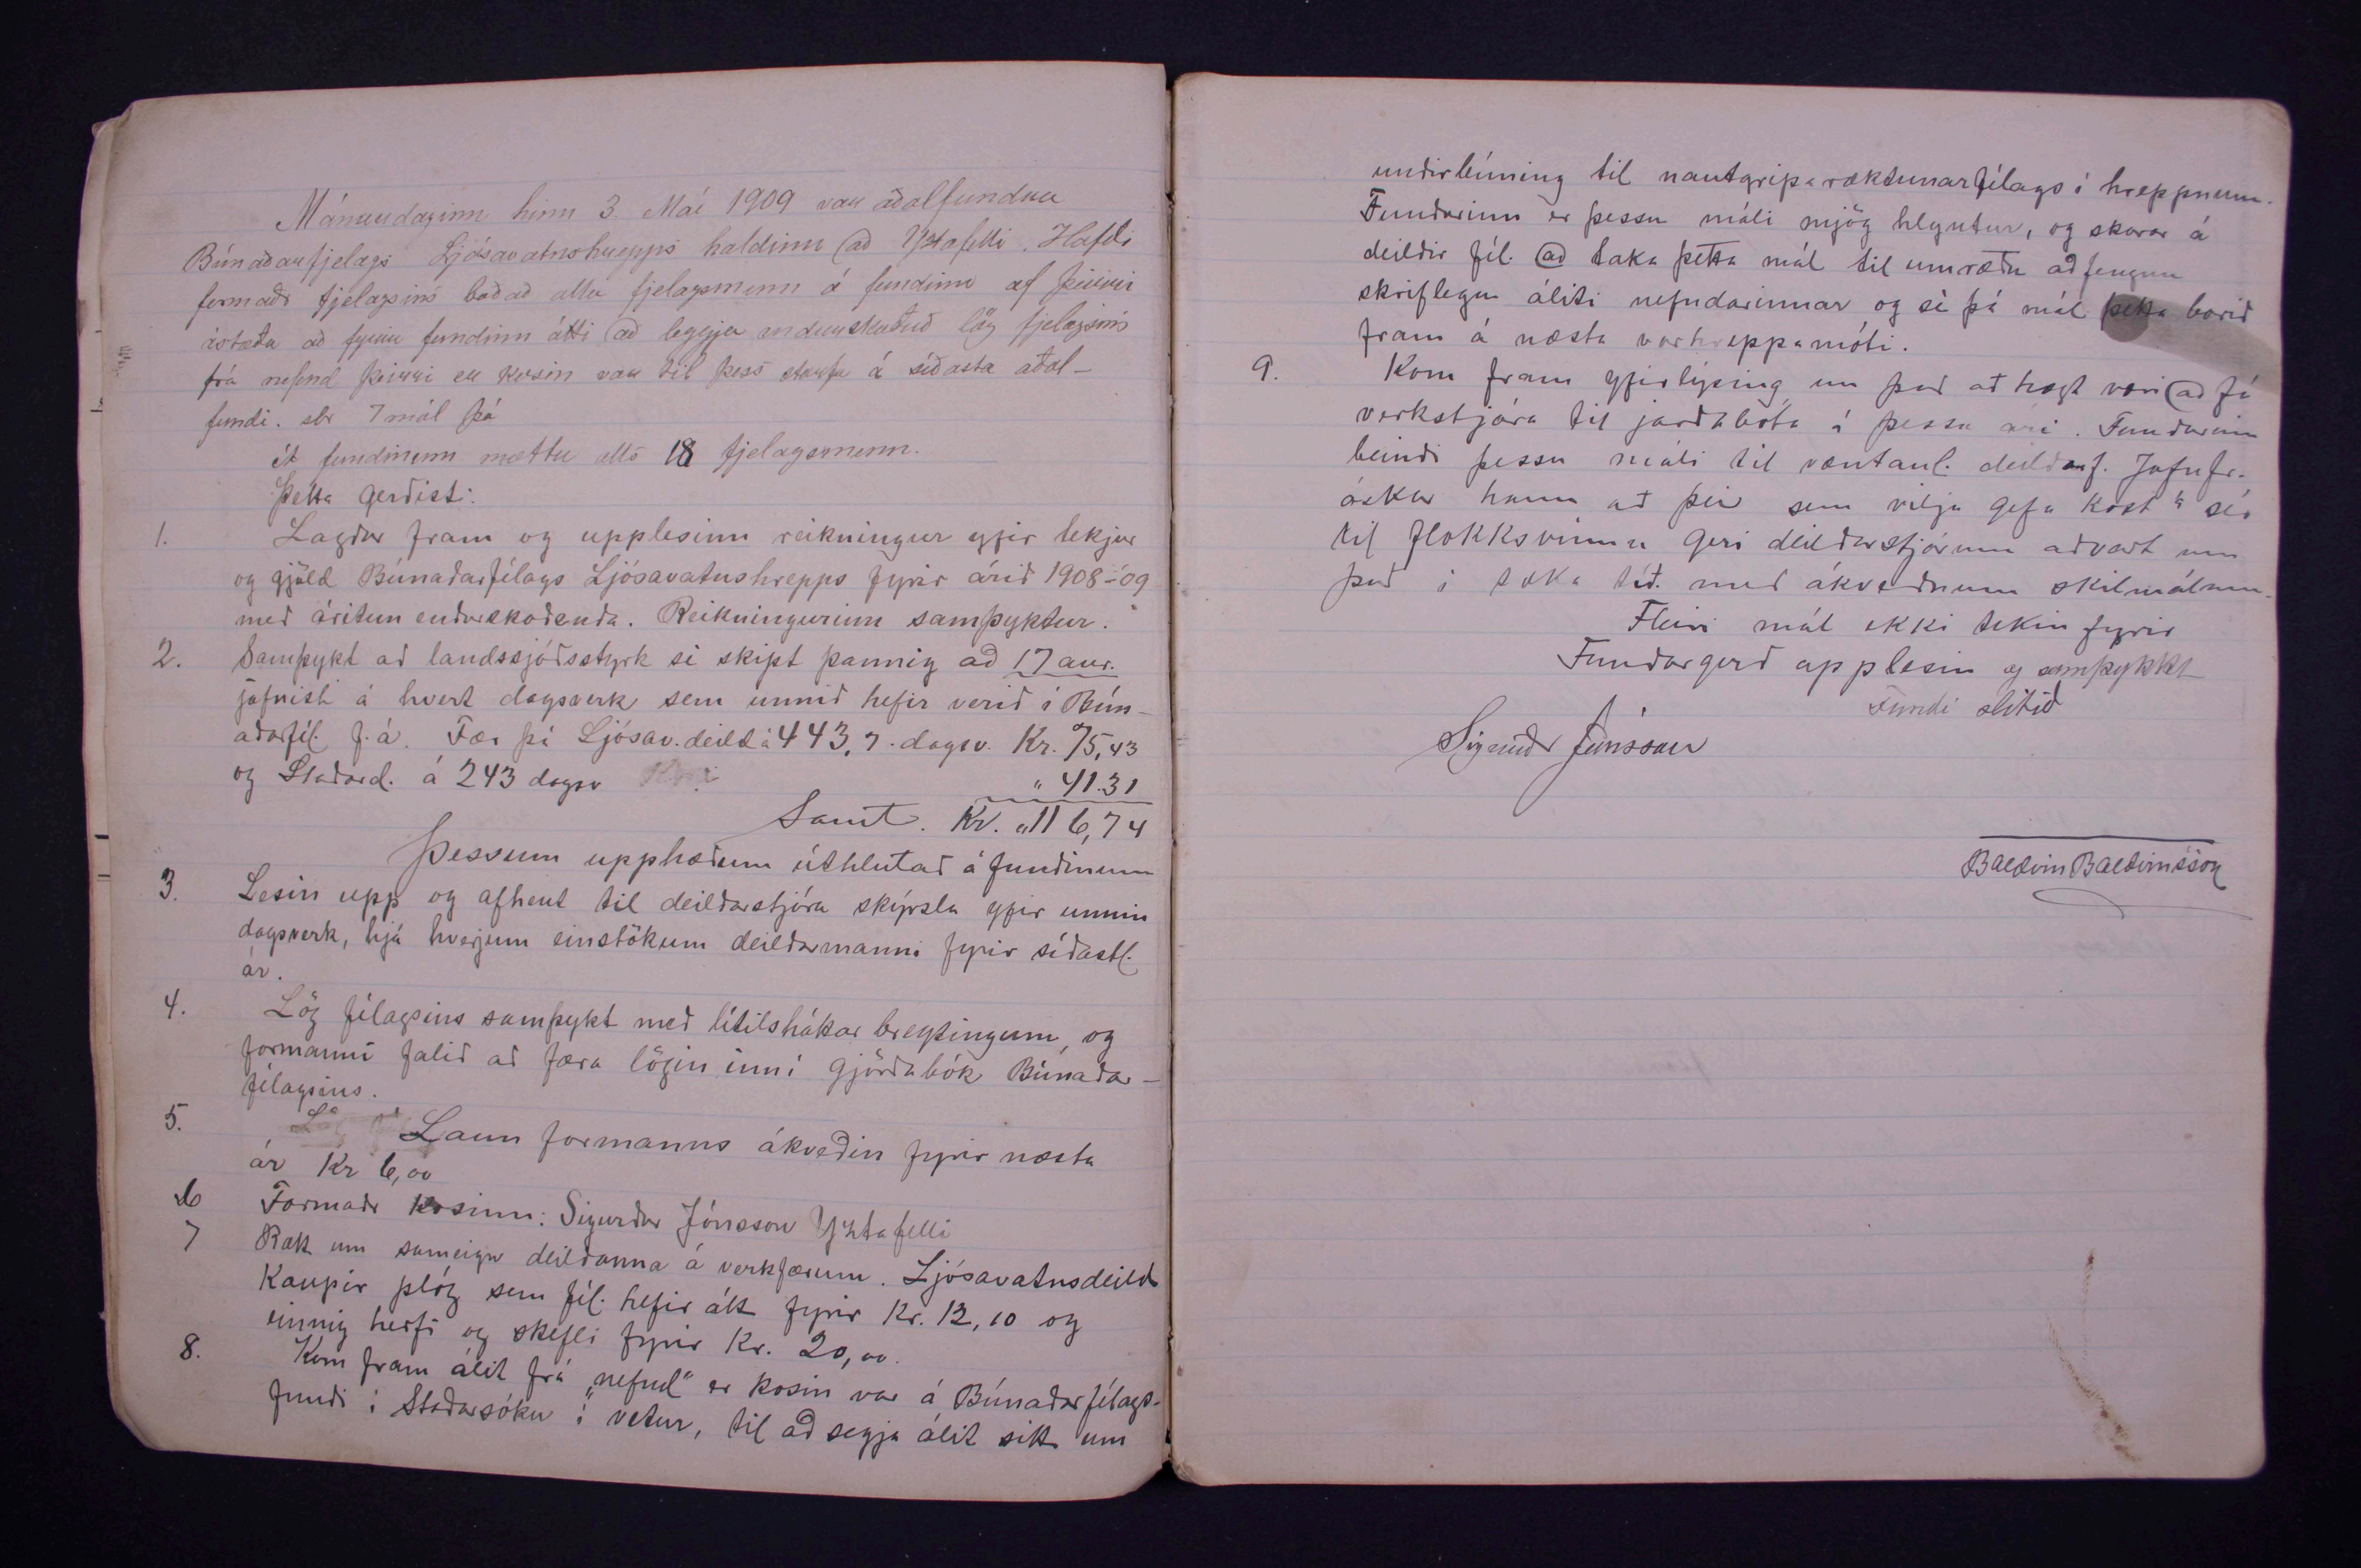 Mánudaginn hinn 3. Maí 1909 var aðalfundur
Búnaðarfjelags Ljósavatnshrepps haldinn að Yztafelli. Hafði
formaðr fjelagsins boðað alla fjelagsmenn á fundinn af þeirri
ástæðu að fyrir fundinn átti að leggja endurskoðuð lög fjelagsins
frá nefnd þeirri er kosin var til þess starfa á síðasta aðal-
fundi. sbr 7 mál þá
Á fundinum mættu alls 18 fjelagsmenn.
Þetta gerðist:
1. Lagður fram og upplesinn reikningur yfir tekjur
og gjöld Búnaðarfélags Ljósavatnshrepps fyrir árið 1908-'09
með áritun endurskoðenda. Reikningurinn samþyktur.
2. Samþykt að landssjóðsstyrk sé skipt þannig að 17 aur.
jafnist á hvert dagsverk sem unnið hefir verið í Bún-
aðarfél. f. á. Fær þá Ljósav.deild á 443,7 dagsv. Kr. 75,43
og Staðard. á 243 dagsv " 41.31
Samt. Kr. " 116,74
Þessum upphæðum úthlutað á fundinum
3. Lesin upp og afhent til deildarstjóra skýrsla yfir unnin
dagsverk, hjá hverjum einstökum deildarmanni fyrir síðastl.
ár.
4. Lög félagsins samþykt með lítilsháttar breytingum, og
formanni falið að færa lögin inní gjörðabók Búnaðar-
félagsins.
5. Laun formanns ákveðin fyrir næsta
ár Kr 6,00
6 Formaðr kosinn: Sigurður Jónsson Yztafelli
7 Rætt um sameign deildanna á verkfærum. Ljósavatnsdeild
kaupir plóg sem fél. hefir átt fyrir Kr. 12,10 og
einnig herfi og skefli fyrir Kr. 20,00.
8. Kom fram álit frá „nefnd" er kosin var á Búnaðarfélags-
fundi í Staðarsókn í vetur, til að segja álit sitt um
undirbúning til nautgriparæktunarfélags í hreppnum.
Fundurinn er þessu máli mjög hlyntur, og skorar á
deildir fél. að taka þetta mál til umræðu að fengnu
skriflegu áliti nefndarinnar og sé þá mál þetta borið
fram á næsta vorhreppamóti.
9. Kom fram yfirlýsing um það að hægt væri að fá
verkstjóra til jarðabóta á þessu ári. Fundurinn
beindi þessu máli til væntanl. deildarf. Jafnfr.
óskar hann að þeir sem vilja gefa kost á sér
til flokksvinnu geri deildarstjórum aðvart um
það í tæka tíð. með ákveðnum skilmálum.
Fleiri mál ekki tekin fyrir
Fundargerð upplesin og samþykkt
Fundi slitið
Sigurðr Jónsson
Baldvin Baldvinsson